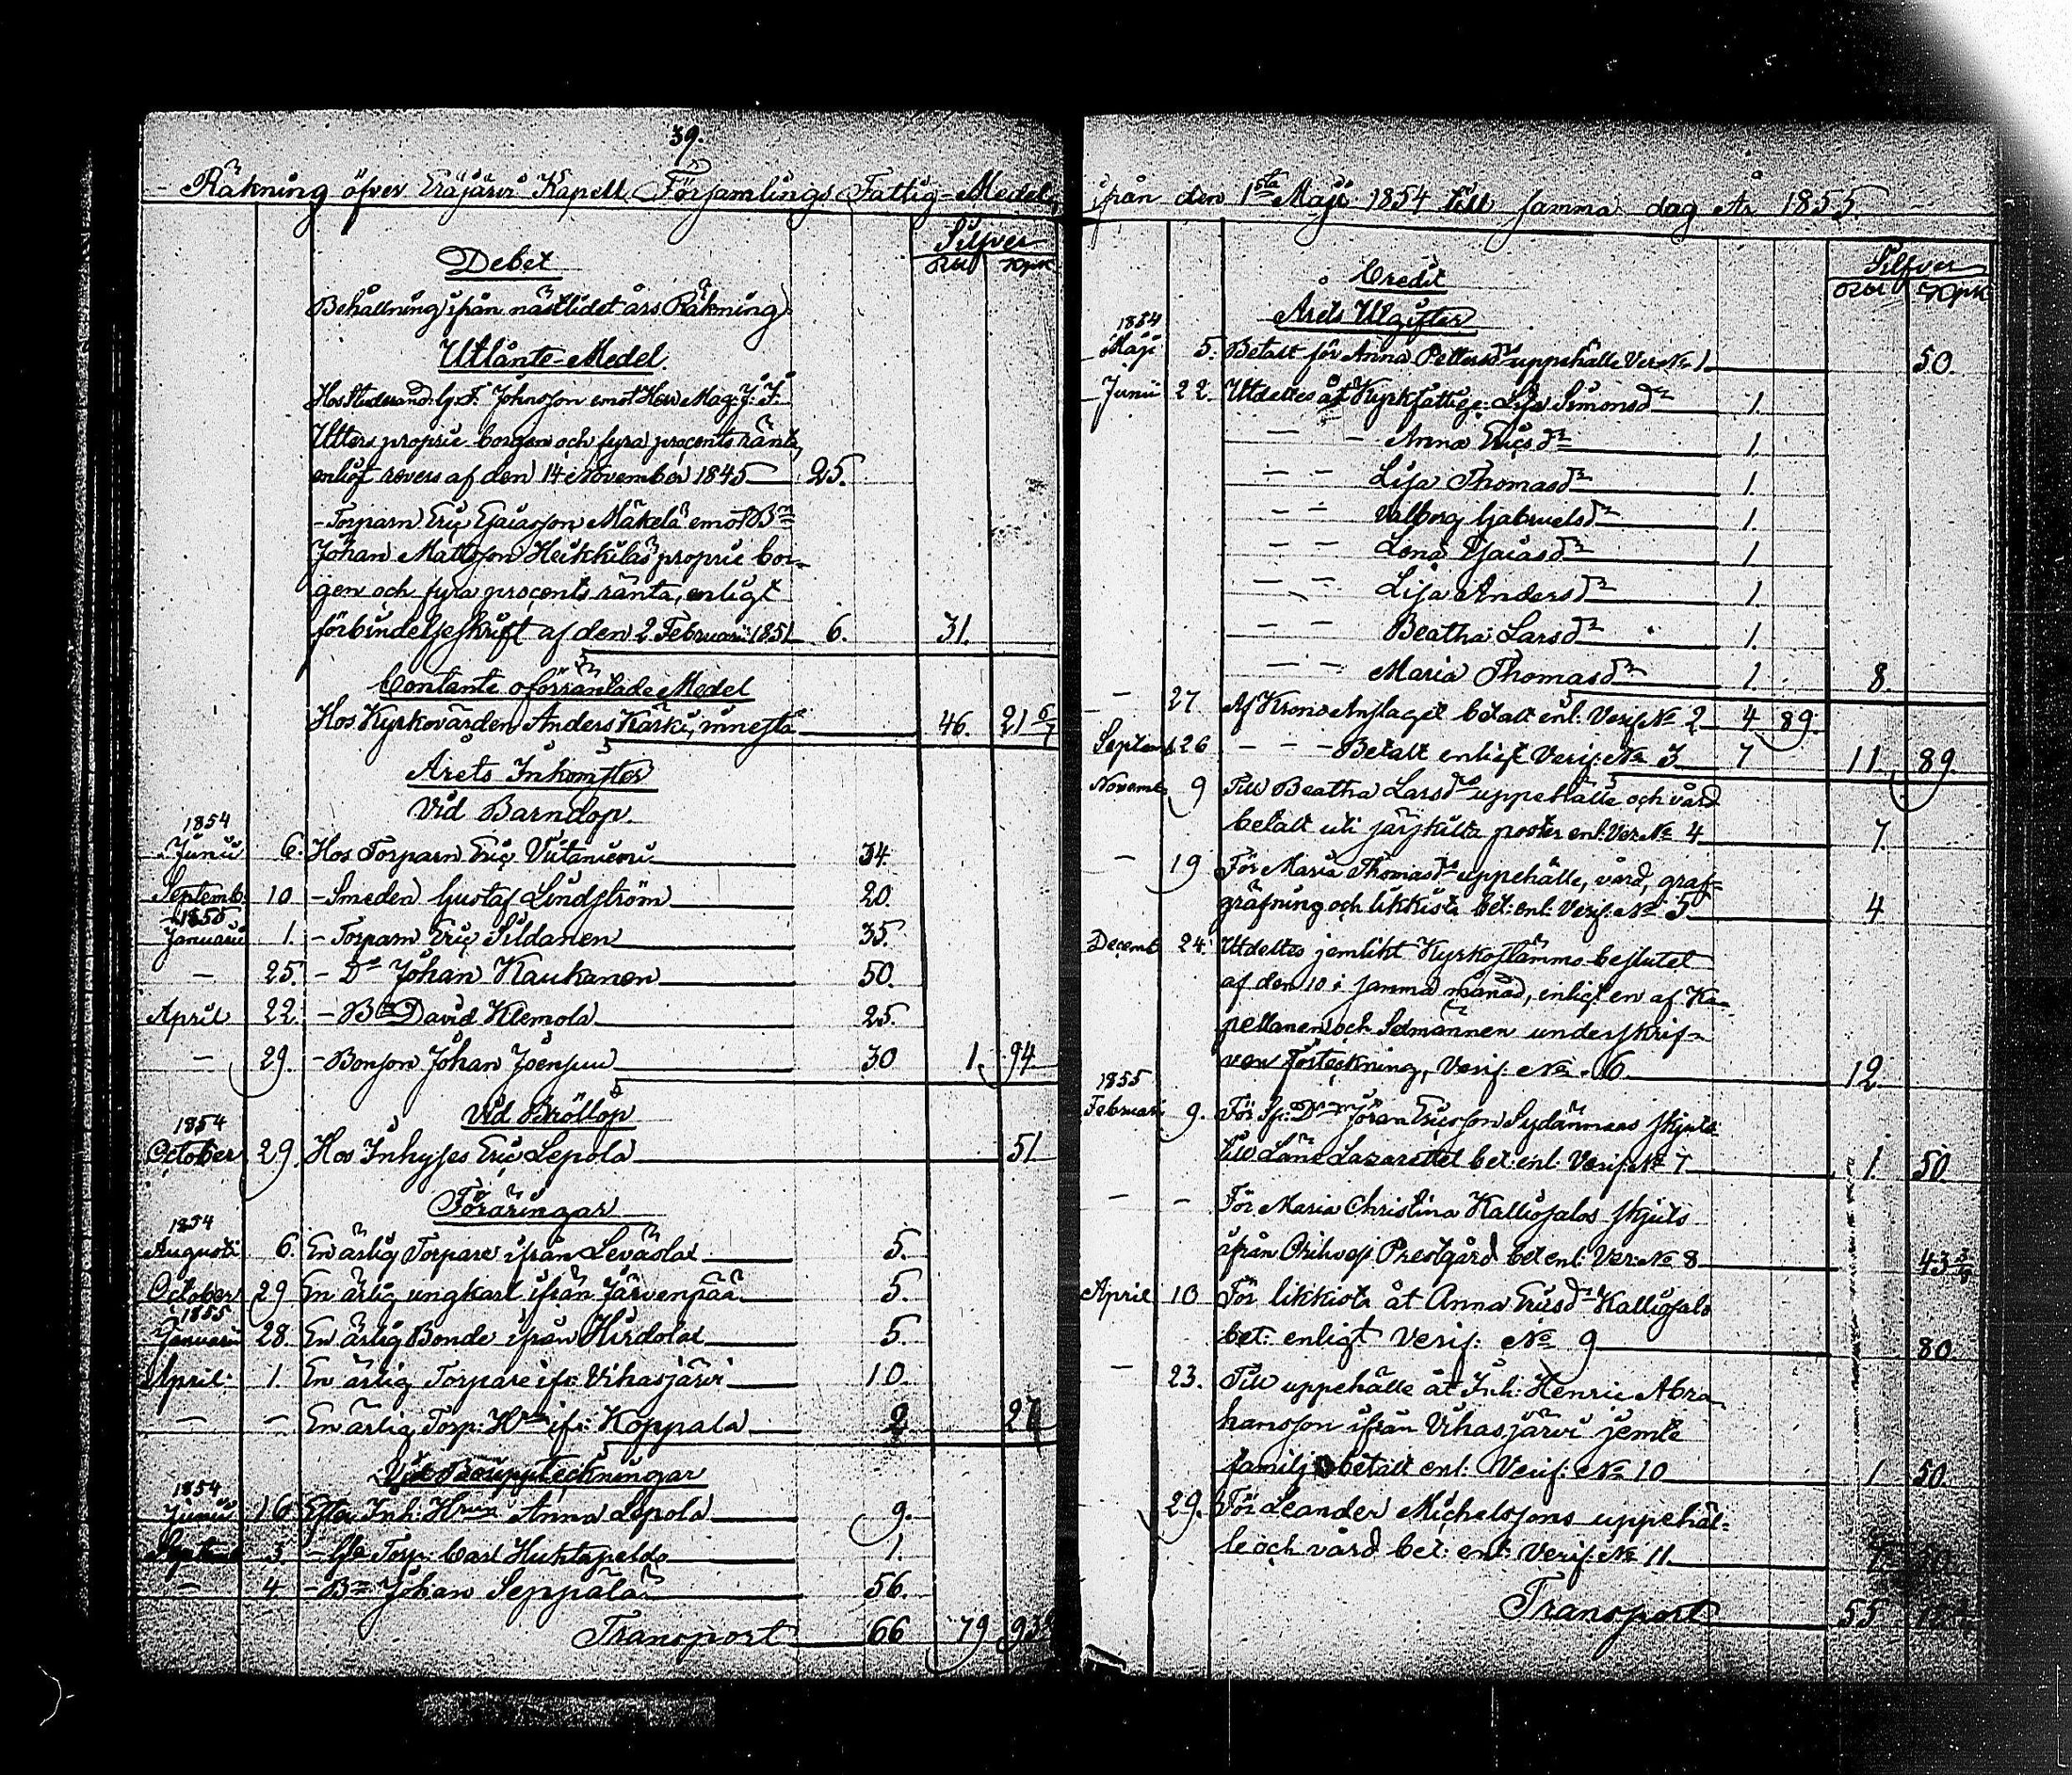 39.
Räkning öfver Eräjärvi Kapell Församlings Fattig-Medel,
Silfver
Rub Kopk
Debet
Behållning ifrån nästlidet års Räkning
Utlånte-Medel.
Hos Studerand: G. F. Johnsson emot Herr Mag: J: F:
Utters proprie borgen och fyra procents ränta,
enligt revers af den 14 November 1845 25.
- Torparn Eric Esaiasson Mäkelä emot Bn
Johan Mattsson Heikkiläs proprie bor-
gen och fyra procents ränta, enligt
förbindelseskrift af den 2. Februarii 1851 6. 31.
Contante oförräntade Medel
Hos Kyrkovärden Anders Kärki, innesta 46. 21 6/7
Årets Inkomster
Vid Barndop.
1854
Junii 6. Hos Torparn Eric Viitaniemi 34
Septemb. 10 - Smeden Gustaf Lindström 20.
1855
Januarii 1. - Torparn Eric Sildanen 35.
- 25. - Do Johan Kaukanen 50.
April 22. - Bn David Klemola 25.
- 29. - Bonson Johan Joensuu 30 1. 94.
Vid Bröllop
1854
October 29. Hos Inhyses Eric Lepola 51
Föräringar
1854
Augusti 6. En ärlig Torpare ifrån Leväslax 5.
October 29 En ärlig ungkarl ifrån Järvenpää 5.
1855
Januarii 28. En ärlig Bonde ifrån Hirdolax 5.
April 1. En ärlig Torpare ifr: Vihasjärvi 10.
- - En ärlig Torp: Hu ifr: Koppala 2. 27
Vid Bouppteckningar
1854
Junii 16 Efter Inh: Hrun Anna Lepola 9.
Septemb 3. - Torp: Carl Huhtapeldo 1.
- 4 - Bn Johan Seppälä 56.
Transport 66 79 93
ifrån den 1sta Maji 1854 till samma dag År 1855.
Silfver
Rub Kopk
Credit
Årets Utgifter
1854
Maji 5. Betalt för Anna Pettersdrs uppehälle Ver. No 1 50.
Junii 22. Utdeltes åt Kyrkfattige: Lisa Simonsdr 1.
- - - Anna Ericsdr 1.
- - Lisa Thomasdr 1.
- - Valborg Gabrielsdr 1.
- - Lena Esaiasdr 1.
- - Lisa Andersdr 1.
- - Beatha Larsdr 1.
- - Maria Thomasdr 1. 8.
- 27 Af Krono Anslaget betalt enl: Verif: No 2 4 89.
Septemb 26 - - - Betalt enligt Verif: No 3 7 11. 89.
Novemb. 9 Till Beatha Larsdrs uppehälle och vård
betalt uti särskilta poster enl: Ver. No 4 7.
- 19 För Maria Thomasdrs uppehälle, vård, graf-
gräfning och likkista bet: enl: Verif: No 5 4
Decemb 24. Utdeltes jemlikt Kyrkostämmo-beslutet
af den 10 i samma månad, enligt en af Ka-
pellanen och Sexmännen underskrif-
ven Förteckning, Verif. No. 6 12.
1855
Februari 9. För Sp: Dn Jöran Ericsson Sydänmaas skjuts
till Läns Lazarettet bet: enl: Verif: No 7 1. 50
- - För Maria Christina Kalliosalos skjuts
ifrån Orihvesi Prestgård bet enl: Ver: No 8 43
April 10 För likkista åt Anna Ericsdr Kalliosalo
bet: enligt Verif: No 9 80.
- 23. Till uppehälle åt Inh: Henric Abra
hamsson ifrån Vihasjärvi jemte
familj betalt enl: Verif: No 10 1 50.
29. För Leander Michelssons uppehäl-
le och vård bet: enl: Verif: No 11.
Transport 55